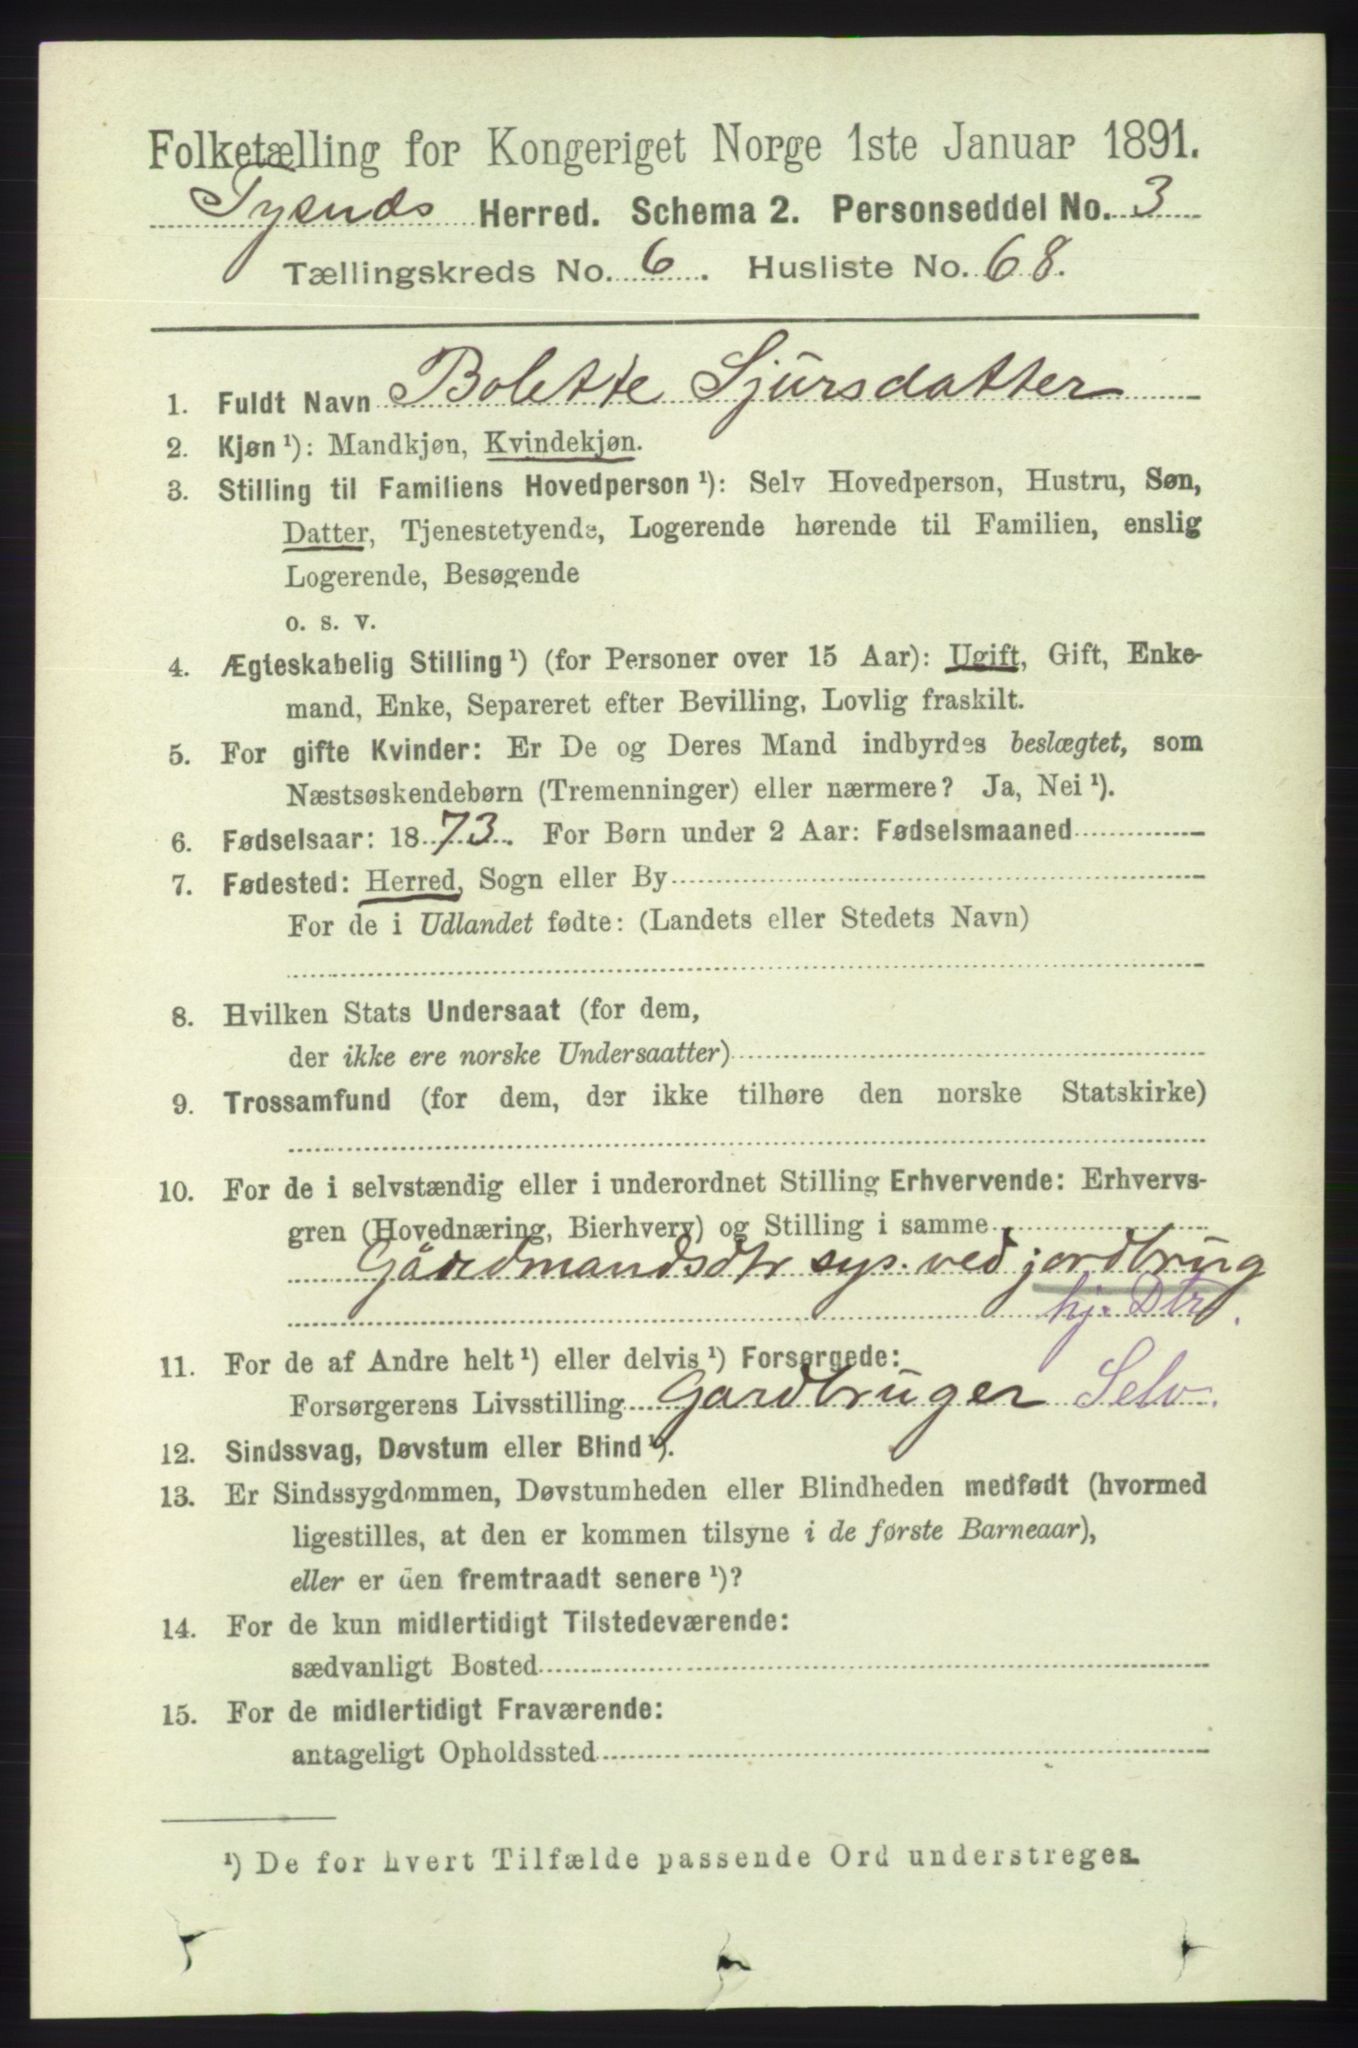 Folketælling for Kongeriget Norge 1ste Januar 1891.
Tysnes Herred. Schema 2. Personseddel No. 3
Tællingskreds No. 6. Husliste No. 68.
1. Fuldt Navn Bolette Sjursdatter
2. Kjøn ¹): Mandkjøn, Kvindekjøn.
3. Stilling til Familiens Hovedperson ¹): Selv Hovedperson, Hustru, Søn,
Datter, Tjenestetyende, Logerende hørende til Familien, enslig
Logerende, Besøgende
o. s. v.
4. Ægteskabelig Stilling ¹) (for Personer over 15 Aar): Ugift, Gift, Enke-
mand, Enke, Separeret efter Bevilling, Lovlig fraskilt.
5. For gifte Kvinder: Er De og Deres Mand indbyrdes beslægtet, som
Næstsøskendebørn (Tremenninger) eller nærmere? Ja, Nei ¹).
6. Fødselsaar: 1873. For Børn under 2 Aar: Fødselsmaaned
7. Fødested: Herred, Sogn eller By
For de i Udlandet fødte: (Landets eller Stedets Navn)
8. Hvilken Stats Undersaat (for dem,
der ikke ere norske Undersaatter)
9. Trossamfund (for dem, der ikke tilhøre den norske Statskirke)
10. For de i selvstændig eller i underordnet Stilling Erhvervende: Erhvervs-
gren (Hovednæring, Bierhverv) og Stilling i samme
Gårdmandsdtr sys. ved jordbrug
hj. Dtr.
11. For de af Andre helt ¹) eller delvis ¹) Forsørgede:
Forsørgerens Livsstilling Gardbruger Selv.
12. Sindssvag, Døvstum eller Blind ¹).
13. Er Sindssygdommen, Døvstumheden eller Blindheden medfødt (hvormed
ligestilles, at den er kommen tilsyne i de første Barneaar),
eller er den fremtraadt senere ¹)?
14. For de kun midlertidigt Tilstedeværende:
sædvanligt Bosted
15. For de midlertidigt Fraværende:
antageligt Opholdssted
¹) De for hvert Tilfælde passende Ord understreges.